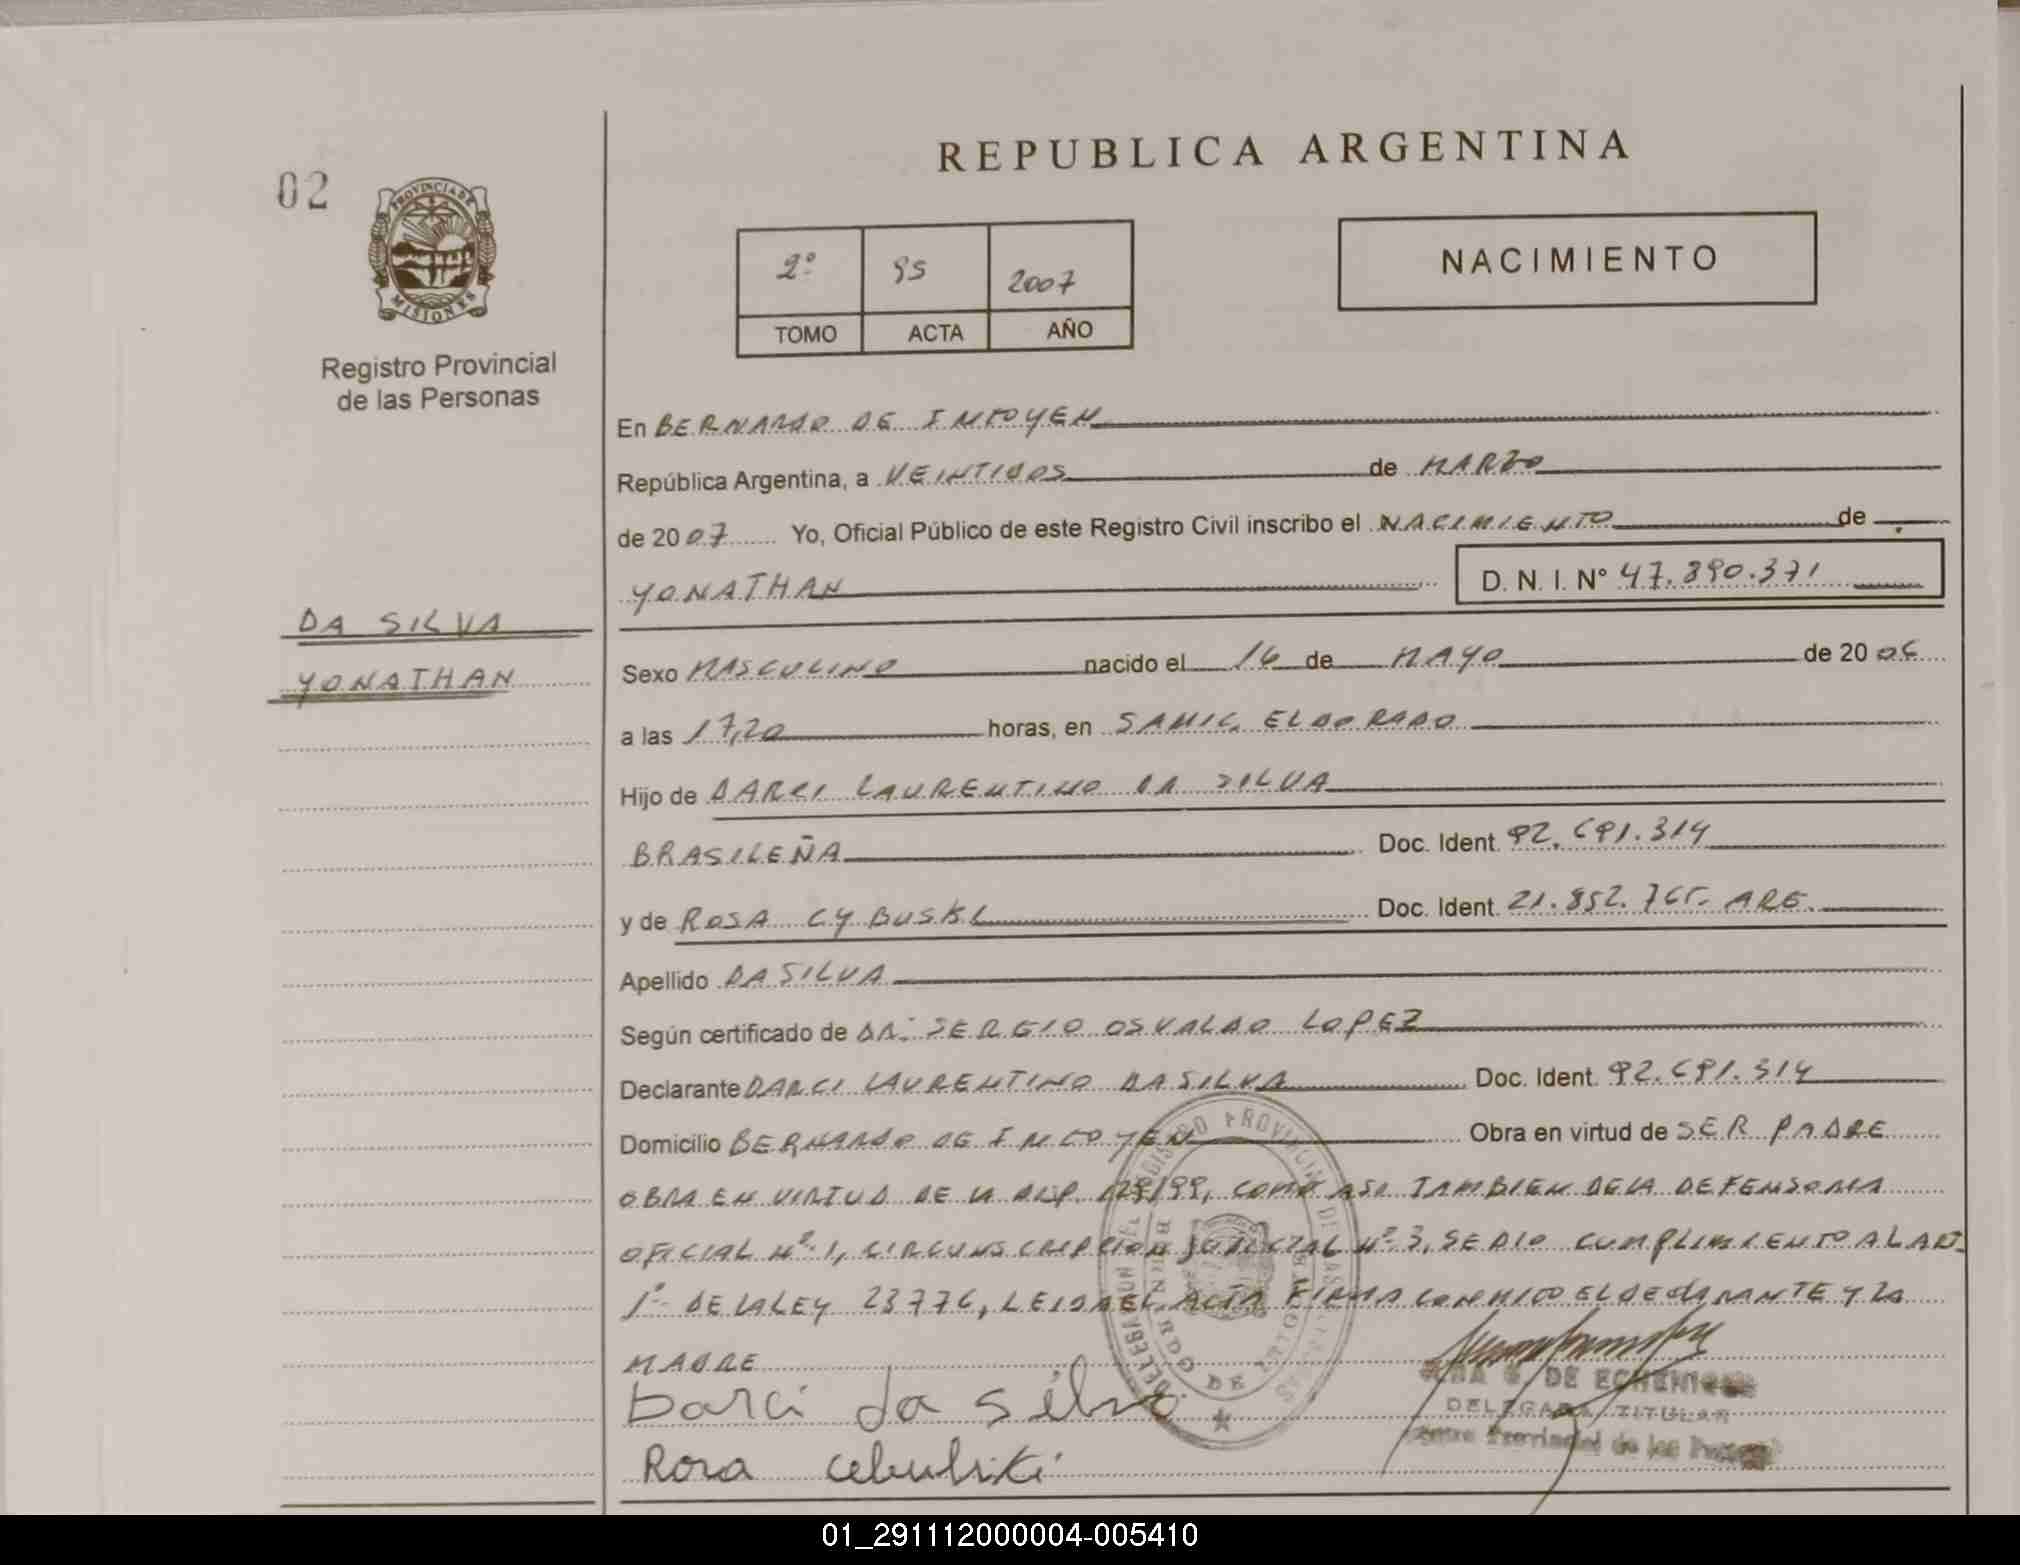 REPUBLICA ARGENTINA
02
PROVINCIA DE
MISIONES
Registro Provincial
de las Personas
2º 95 2007
TOMO ACTA AÑO
NACIMIENTO
En BERNARDO DE IRIGOYEN
República Argentina, a VEINTIDOS de MARZO
de 2007 Yo, Oficial Público de este Registro Civil inscribo el NACIMIENTO de
YONATHAN D. N. I. Nº 47.890.371
DA SILVA
YONATHAN
Sexo MASCULINO nacido el 16 de MAYO de 2006
a las 17,20 horas, en SAMIC. ELDORADO
Hijo de DARCI LAURENTINO DA SILVA
BRASILEÑA Doc. Ident. 92.691.314
y de ROSA CYBUSKI Doc. Ident. 21.852.765- ARG.
Apellido DA SILVA
Según certificado de DR. SERGIO OSVALDO LOPEZ
Declarante DARCI LAURENTINO DA SILVA Doc. Ident. 92.691.314
Domicilio BERNARDO DE IRIGOYEN Obra en virtud de SER PADRE
OBRA EN VIRTUD DE LA DISP. 129/99, COMO ASI TAMBIEN DE LA DEFENSORIA
OFICIAL Nº 1, CIRCUNSCRIPCION JUDICIAL Nº 3, SE DIO CUMPLIMIENTO AL ART.
1º DE LA LEY 23776, LEIDA EL ACTA FIRMA CONMIGO EL DECLARANTE Y LA
MADRE
Darci da silva
DE ECHENIQUE
DELEGADA TITULAR
Provincial de las
Rosa cebulski
01_291112000004-005410